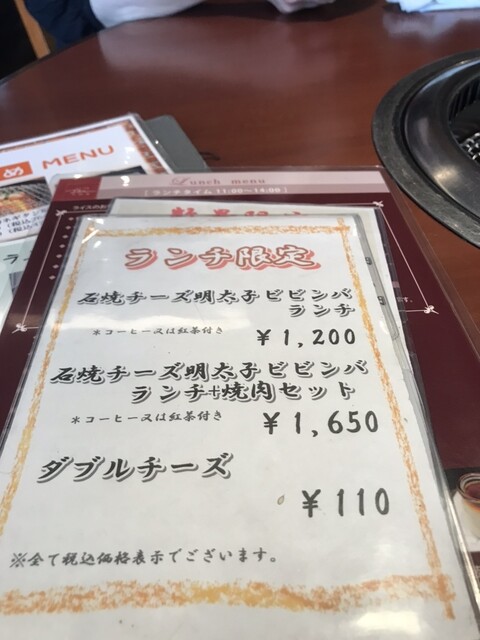 め MENU
Lunch menu
[ランチタイム 11:00~14:00]
ランチ限定
石焼チーズ明太子ビビンバ
ランチ
*コーヒー又は紅茶付き
¥1,200
石焼チーズ明太子ビビンバ
ランチ+焼肉セット
*コーヒー又は紅茶付き
¥1,650
ダブルチーズ
¥110
※全て税込価格表示でございます。